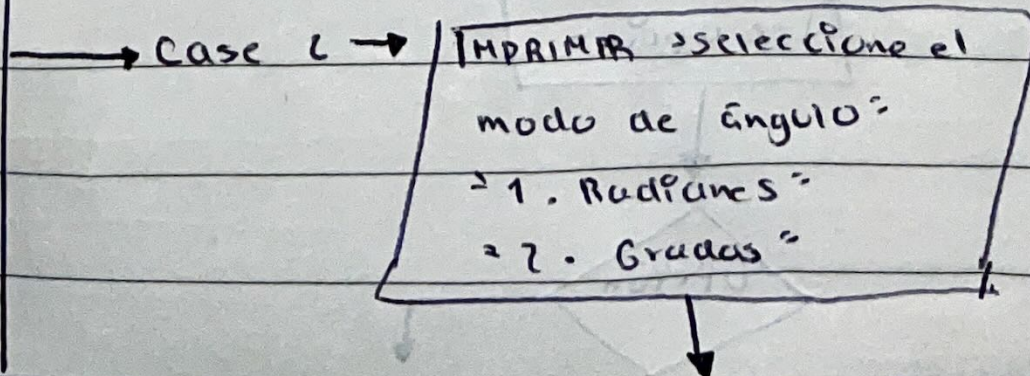 Case 2 IMPRIMIR "seleccione el
modo de ángulo"
"1. Radianes"
"2. Grados"